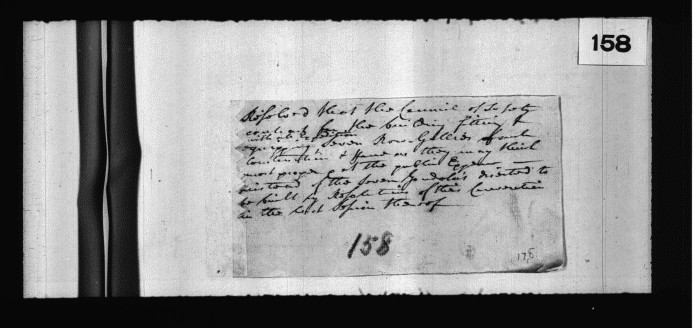 158
Resolved that the Council of Safety
contract for the building fitting &
with all expedition
equipping Seven Row Gallies of such
Construction & force as they may think
most proper at the public Expence
instead of the Seven Gondola's directed to
be built by Resolution of this Convention
in the last Session thereof
158
176